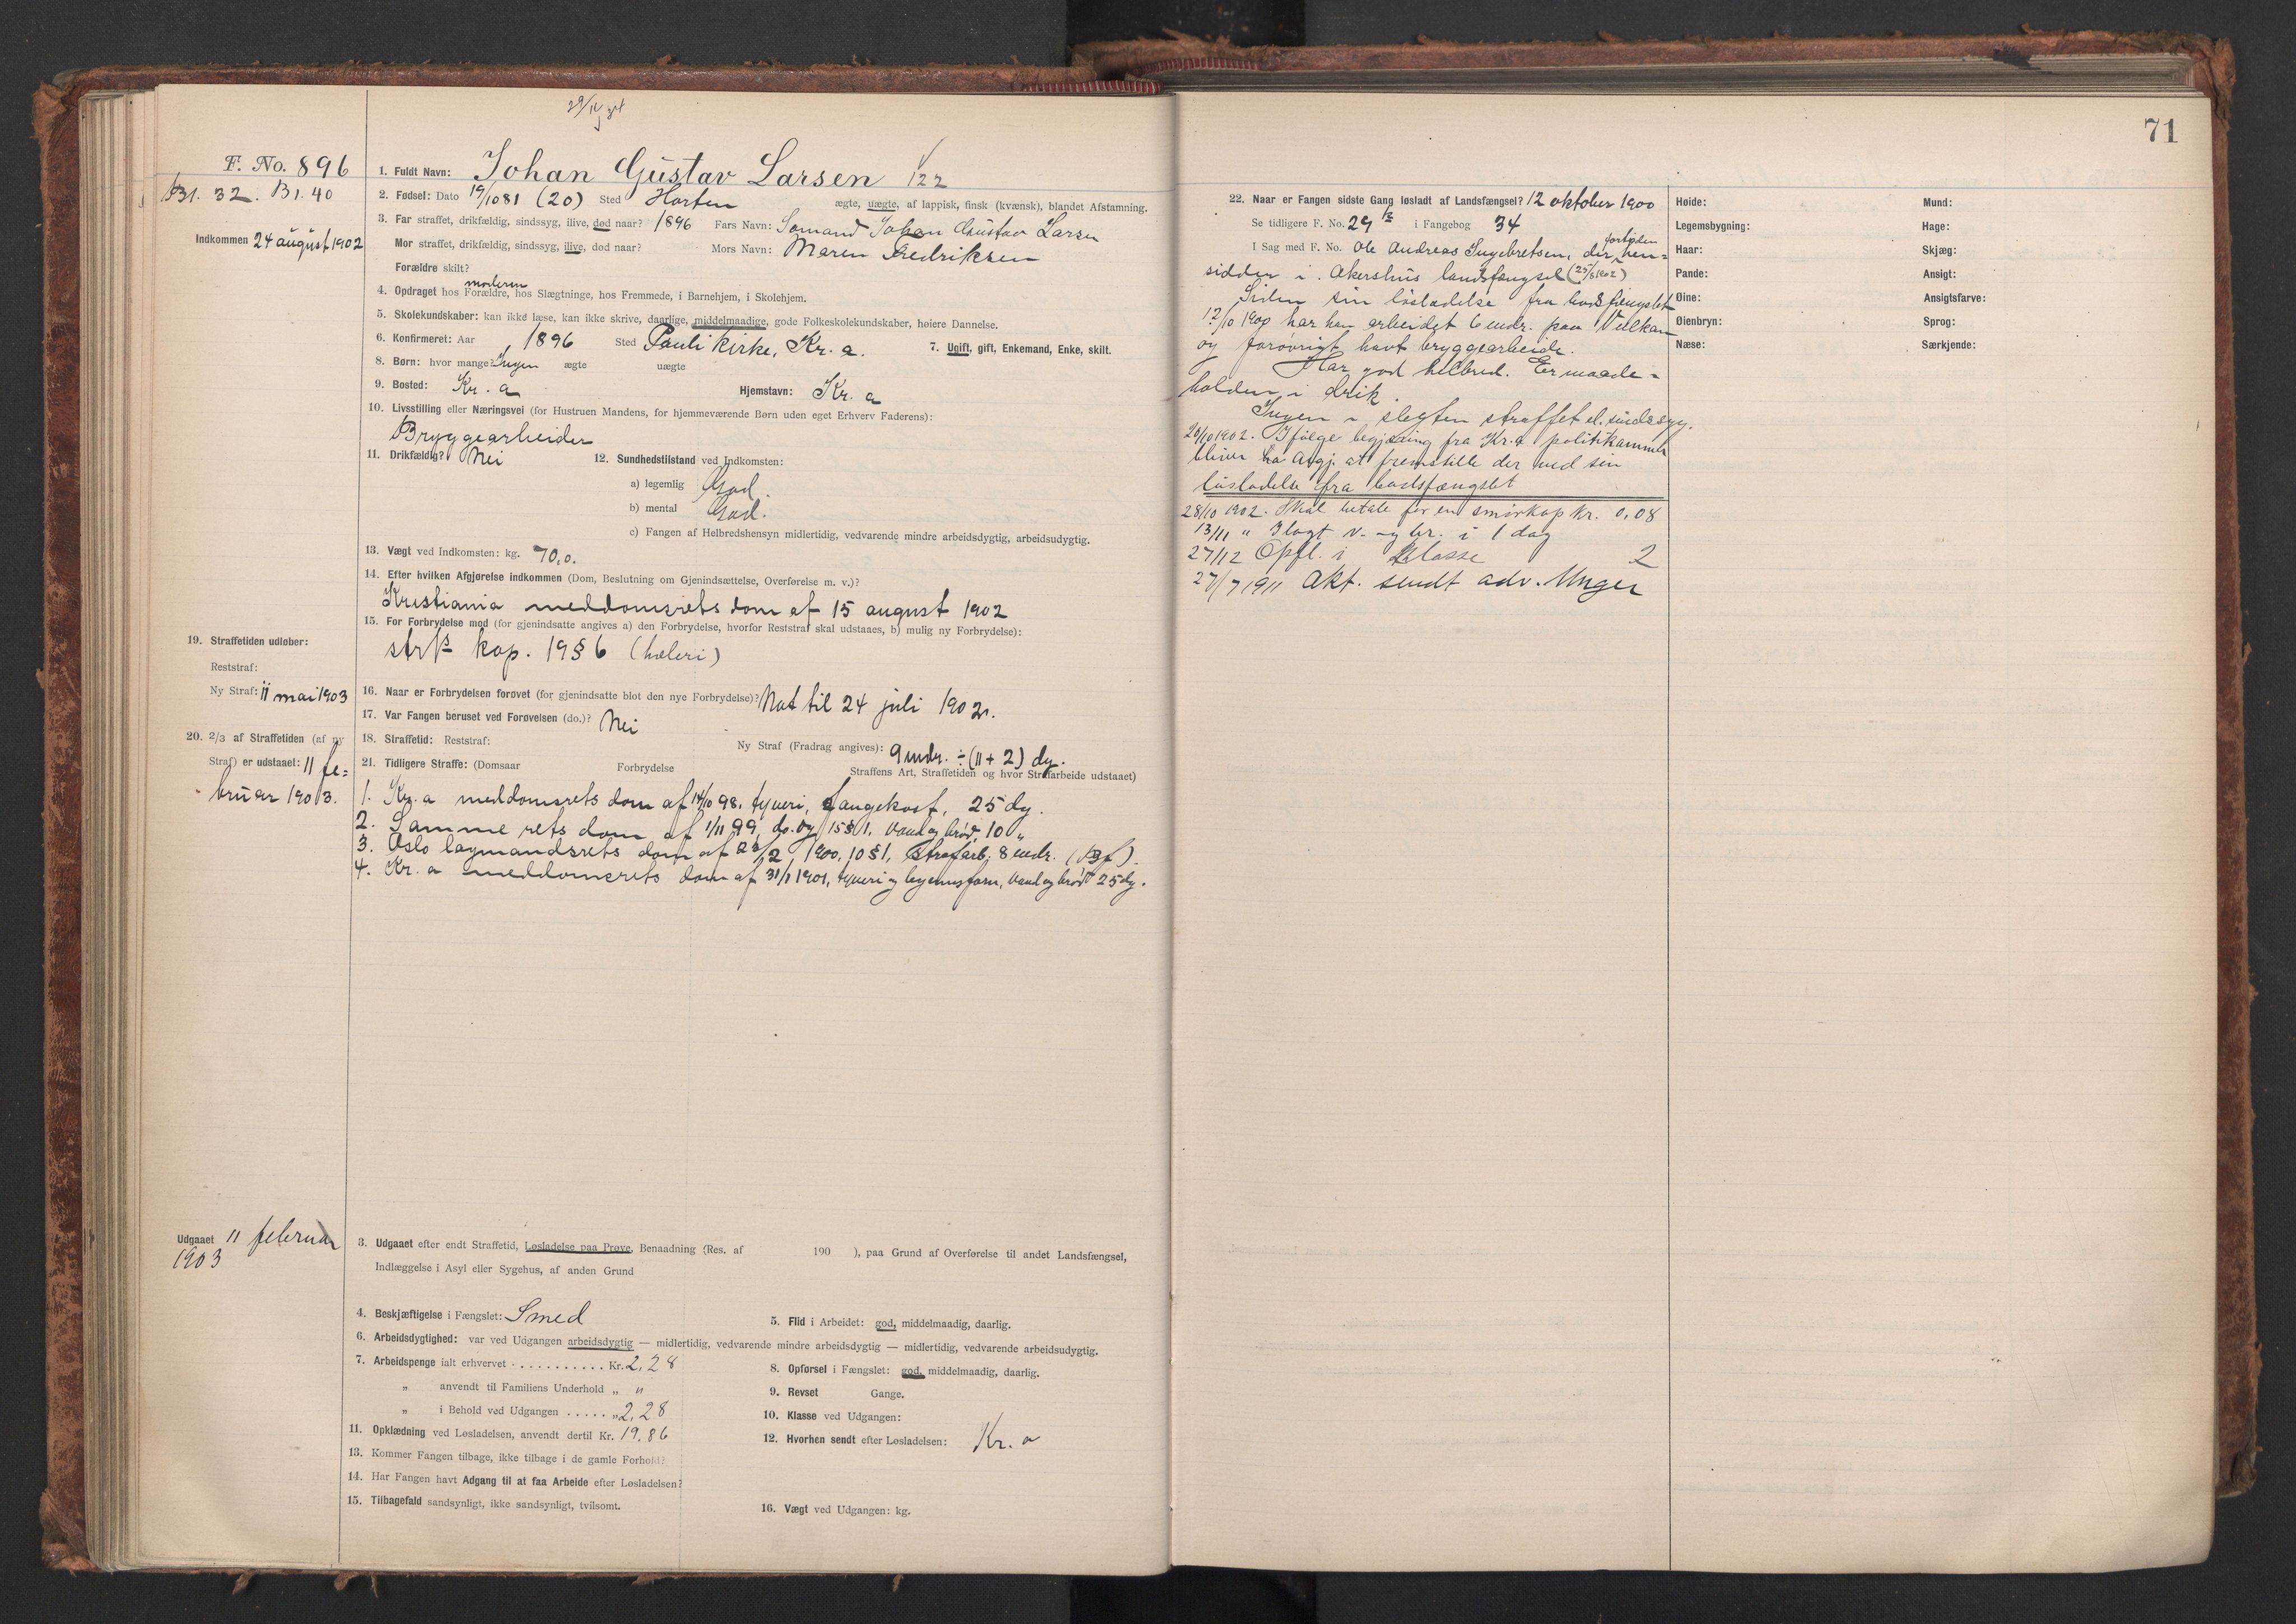 71
F. No. 896
Bl. 32. Bl. 40
Indkommen 24 august 1902
1. Fuldt Navn: Johan Gustav Larsen 122
2. Fødsel: Dato 19/10 81 (20) Sted Horten ægte, uægte, af lappisk, finsk (kvænsk), blandet Afstamning.
3. Far straffet, drikfældig, sindssyg, ilive, død naar? 1896 Fars Navn: Sømand Johan Gustav Larsen
Mor straffet, drikfældig, sindssyg, ilive, død naar? Mors Navn: Maren Fredriksen
Forældre skilt?
moderen
4. Opdraget hos Forældre, hos Slægtninge, hos Fremmede, i Barnehjem, i Skolehjem.
5. Skolekundskaber: kan ikke læse, kan ikke skrive, daarlige, middelmaadige, gode Folkeskolekundskaber, høiere Dannelse.
6. Konfirmeret: Aar 1896 Sted Pauli kirke, Kr. a. 7. Ugift, gift, Enkemand, Enke, skilt.
8. Børn: hvor mange? Ingen ægte uægte
9. Bosted: Kr. a Hjemstavn: Kr. a
10. Livsstilling eller Næringsvei (for Hustruen Mandens, for hjemmeværende Børn uden eget Erhverv Faderens):
Bryggearbeider
11. Drikfældig? Nei 12. Sundhedstilstand ved Indkomsten:
a) legemlig God.
b) mental God.
c) Fangen af Helbredshensyn midlertidig, vedvarende mindre arbeidsdygtig, arbeidsudygtig.
13. Vægt ved Indkomsten: kg. 70,0.
14. Efter hvilken Afgjørelse indkommen (Dom, Beslutning om Gjenindsættelse, Overførelse m. v.)?
Kristiania meddomsrets dom af 15 august 1902
15. For Forbrydelse mod (for gjenindsatte angives a) den Forbrydelse, hvorfor Reststraf skal udstaaes, b) mulig ny Forbrydelse):
kap. 19 § 6 (hæleri)
19. Straffetiden udløber:
Reststraf:
Ny Straf: 11 mai 1903
16. Naar er Forbrydelsen forøvet (for gjenindsatte blot den nye Forbrydelse)? Nat til 24 juli 1902.
17. Var Fangen beruset ved Forøvelsen (do.)? Nei
18. Straffetid: Reststraf: Ny Straf (Fradrag angives): 9 mdr. ÷ (11 + 2) dg.
20. 2/3 af Straffetiden (af ny
Straf) er udstaaet: 11 fe=
bruar 1903.
21. Tidligere Straffe: (Domsaar Forbrydelse Straffens Art, Straffetiden og hvor Strafarbeide udstaaet)
1. Kr. a meddomsrets dom af 14/10 98, tyveri, fangekost, 25 dg.
2. Samme rets dom af 1/11 99, do. og 15 § 1, vand og brød, 10 "
3. Oslo lagmandsrets dom af 23/2 1900, 10 § 1, strafarb. 8 mdr. (Bf).
4. Kr. a meddomsrets dom af 31/1 1901, tyveri og legemsforn, vand og brød 25 dg.
Udgaaet 11 februar
1903
3. Udgaaet efter endt Straffetid, Løsladelse paa Prøve, Benaadning (Res. af 190 ), paa Grund af Overførelse til andet Landsfængsel,
Indlæggelse i Asyl eller Sygehus, af anden Grund
4. Beskjæftigelse i Fængslet: Smed 5. Flid i Arbeidet: god, middelmaadig, daarlig.
6. Arbeidsdygtighed: var ved Udgangen arbeidsdygtig — midlertidig, vedvarende mindre arbeidsdygtig — midlertidig, vedvarende arbeidsudygtig.
7. Arbeidspenge ialt erhvervet . . . . . . . . . . . Kr. 2,28 8. Opførsel i Fængslet: god, middelmaadig, daarlig.
„ anvendt til Familiens Underhold „ „ 9. Revset Gange.
„ i Behold ved Udgangen . . . . . „ 2,28 10. Klasse ved Udgangen:
11. Opklædning ved Løsladelsen, anvendt dertil Kr. 19,86 12. Hvorhen sendt efter Løsladelsen: Kr. a
13. Kommer Fangen tilbage, ikke tilbage i de gamle Forhold?
14. Har Fangen havt Adgang til at faa Arbeide efter Løsladelsen?
15. Tilbagefald sandsynligt, ikke sandsynligt, tvilsomt. 16. Vægt ved Udgangen: kg.
22. Naar er Fangen sidste Gang løsladt af Landsfængsel? 12 oktober 1900
Se tidligere F. No. 29 i Fangebog 34
I Sag med F. No. Ole Andreas Ingebretsen, der fortiden hen=
sidder i Akershus landsfængsel (25/8 1902)
Siden sin løsladelse fra bodsfængslet
12/10 1900 har han arbeidet 6 mdr. paa Vulkan
og forøvrigt havt bryggearbeide.
Har god helbred. Er maade=
holden i drik.
Ingen i slegten straffet el. sindssyg.
20/10 1902. Ifølge begjæring fra Kr. a politikammer
bliver L. a at fremstille der ved sin
løsladelse fra bodsfængslet
28/10 1902. Skal betale for en smørkop kr. 0,08
13/11 " Ilagt v. og br. i 1 dag
27/12 Opfl. i klasse 2
27/7 1911 Akt. sendt adv. Unger
Høide:
Legemsbygning:
Haar:
Pande:
Øine:
Øienbryn:
Næse:
Mund:
Hage:
Skjæg:
Ansigt:
Ansigtsfarve:
Sprog:
Særkjende: